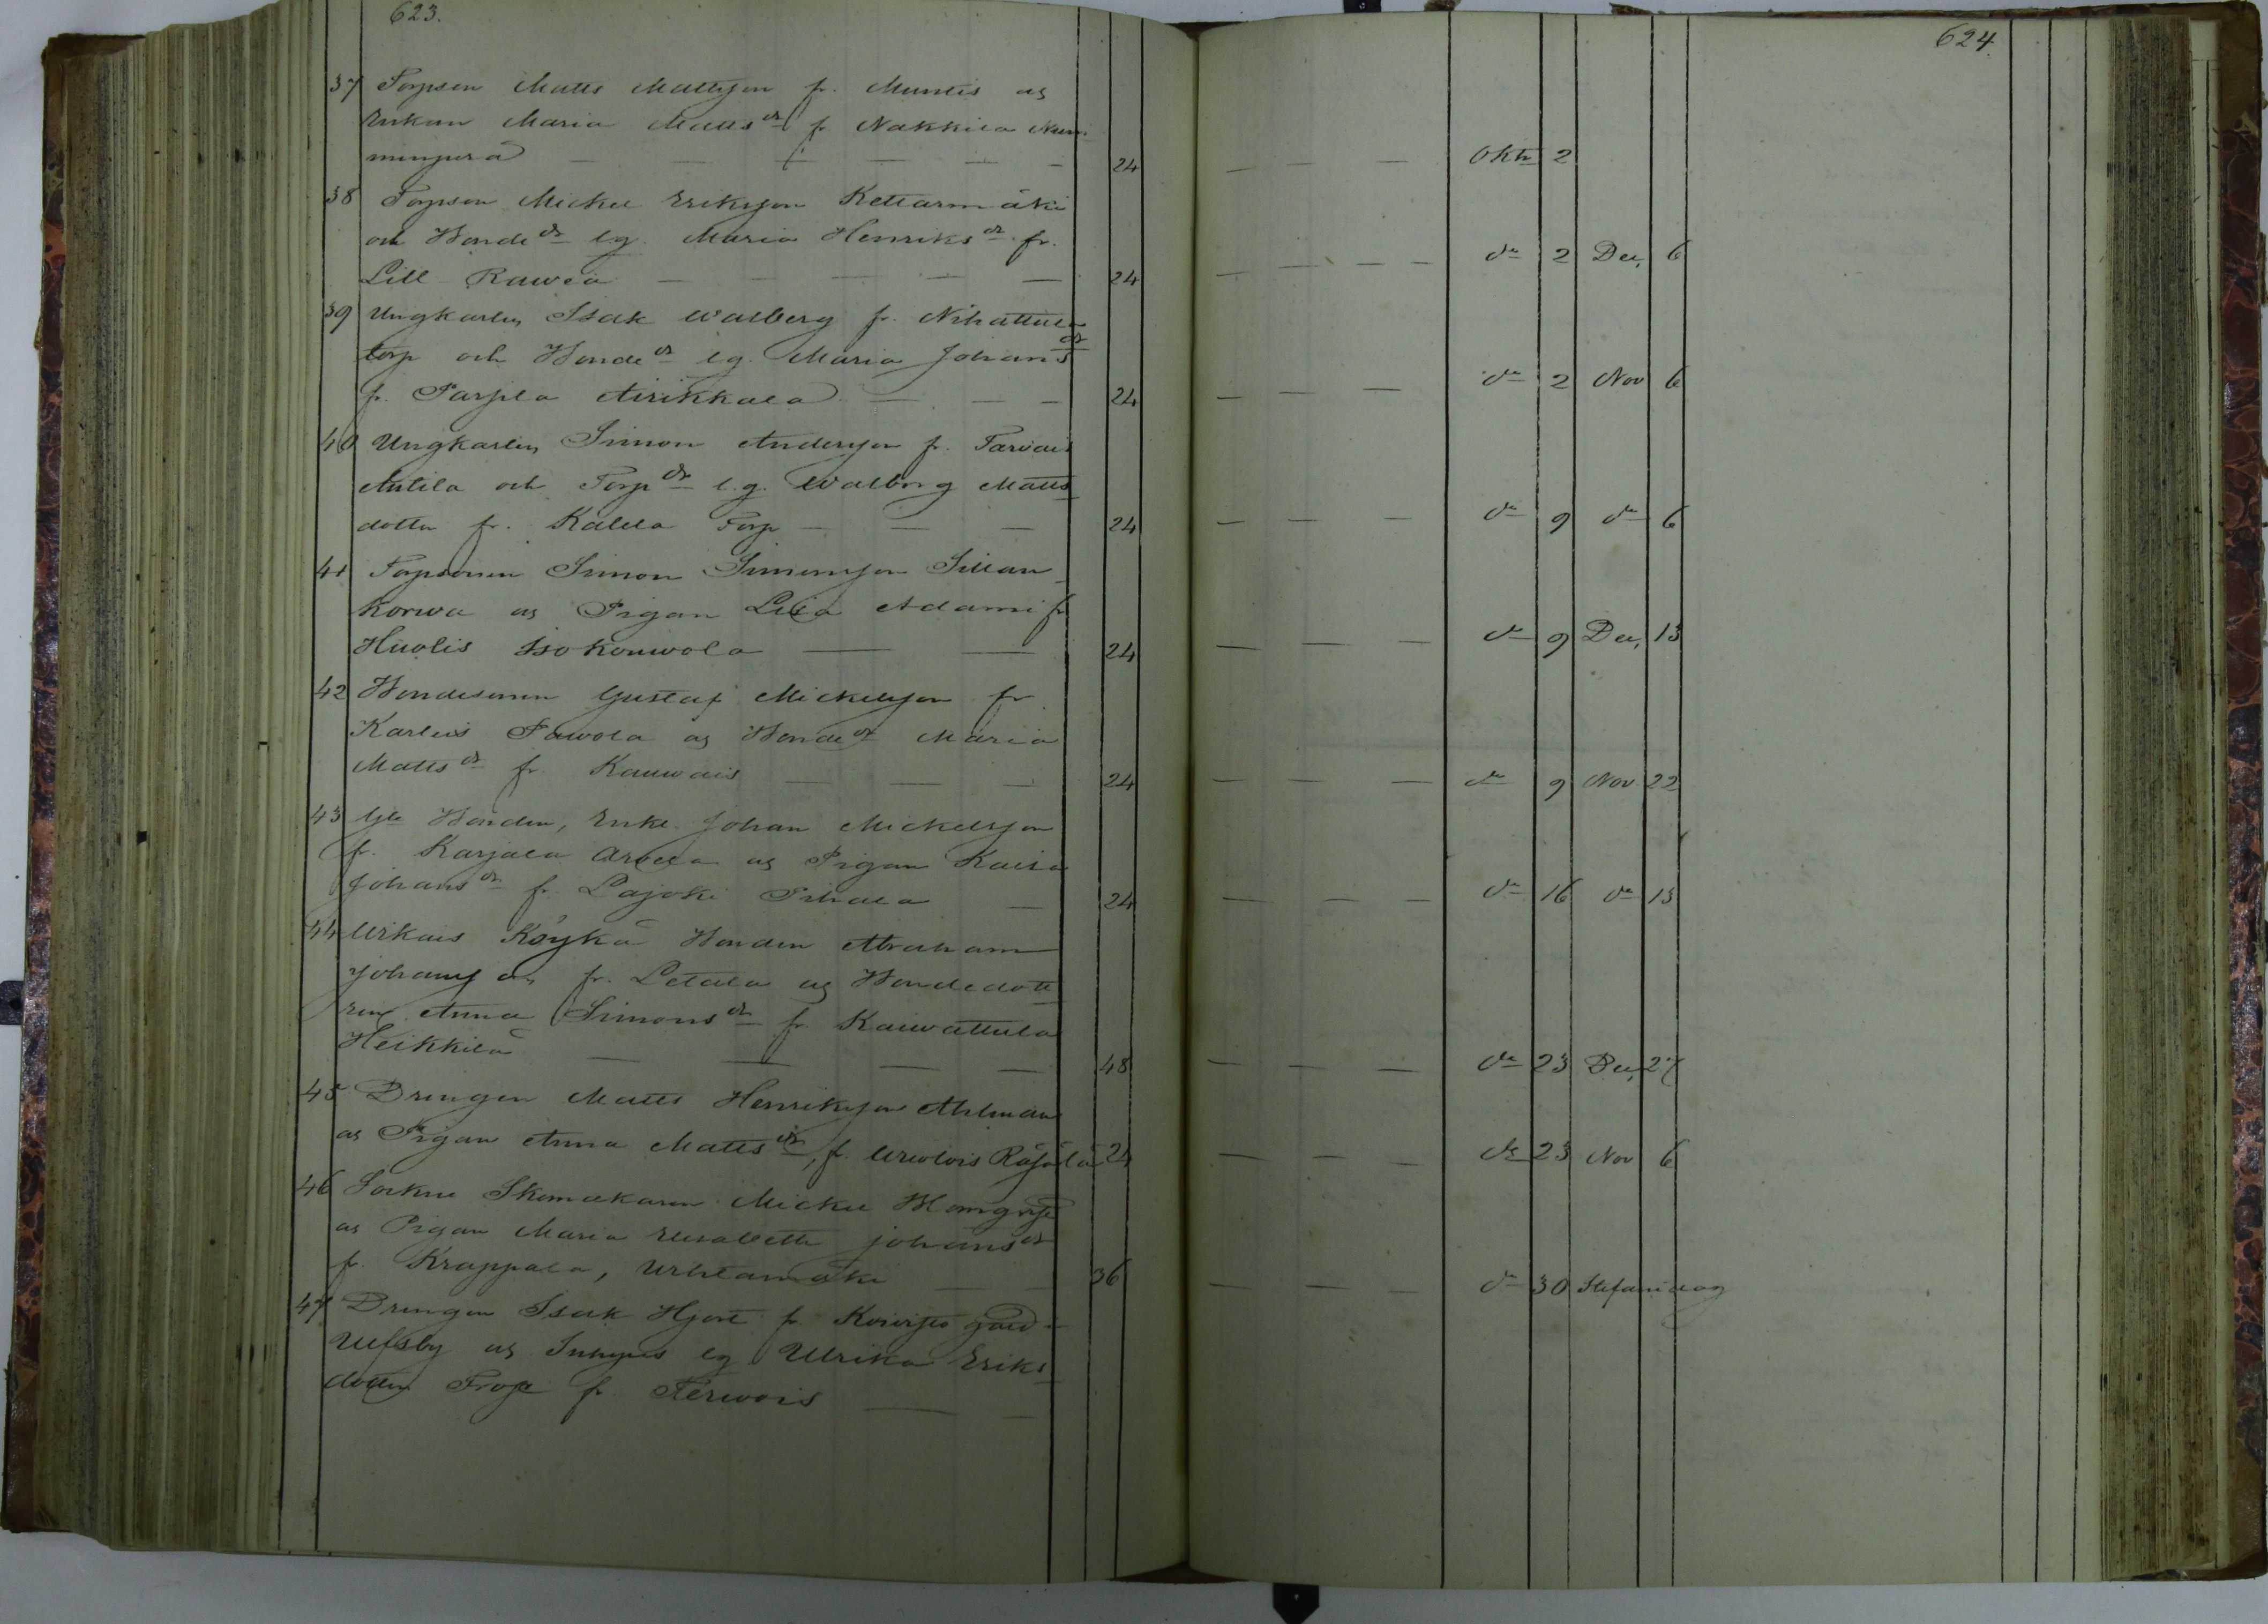 623.
624
37 Torpson Matts Mattsson fr. Muntis og
Enkan Maria Matts dr fr Nakkila Num-
minperä — — — — — 24 — — — Oktr 2
38 Torpson Mickel Eriksson Kettarmäki
och Bonde dr lg. Maria Henriks dr fr.
Lill Rawea — — — — 24 — — — — do 2 Dec, 6
39 Ungkarlen Isak Walberg fr. Nihattula
torp och Bonde dr lg. Maria Johans dr
fr. Parjela Airikkala — — — 24 — — — do 2 Nov 6
40 Ungkarlen Simon Andersson fr. Tarvais
Antila och Torp dr l.g. Walborg Matts
dotter fr. Kalela Torp — — — 24 — — — do 9 do 6
41 Torpsonen Simon Simonsson Sillan-
korwa og Pigan Lisa Adami fr
Huolis Isokouwola — — 24 — — — do 9 Dec, 13
42 Bondesonen Gustaf Mickelsson fr
Karluis Pawola og Bonde dr Maria
Matts dr fr. Kauwais — — — 24 — — — do 9 Nov 22
43 Gle Bonden, Enkl. Johan Mickelsson
fr. Karjala Arvela og Pigan Kaisa
Johans dr fr. Lajoki Pihala — 24 — — — do 16 do 13
44 Urkais Köykä Bonden Abraham
Johansson fr. Letala og Bondedott
ren Anna Simons dr fr. Kaiwattula
Heikkilä — — — — 48 — — — do 23 Dec, 27
45 Drengen Matts Henriksson Ahlman
og Pigan Anna Matts dr, fr. Urwois Räfälä 24 — — — do 23 Nov 6
46 Sockne Skomakaren Mickel
og Pigan Maria Elisabeth Johans dr
fr. Krappala, Uhlamäki — — 36 — — — do 30 Stefanidag
47 Drengen Isak Hjort fr. Koivisto gård
Ulfsby og Inhyses lg Ulrika Eriks
dotter Frost fr Terwois — —